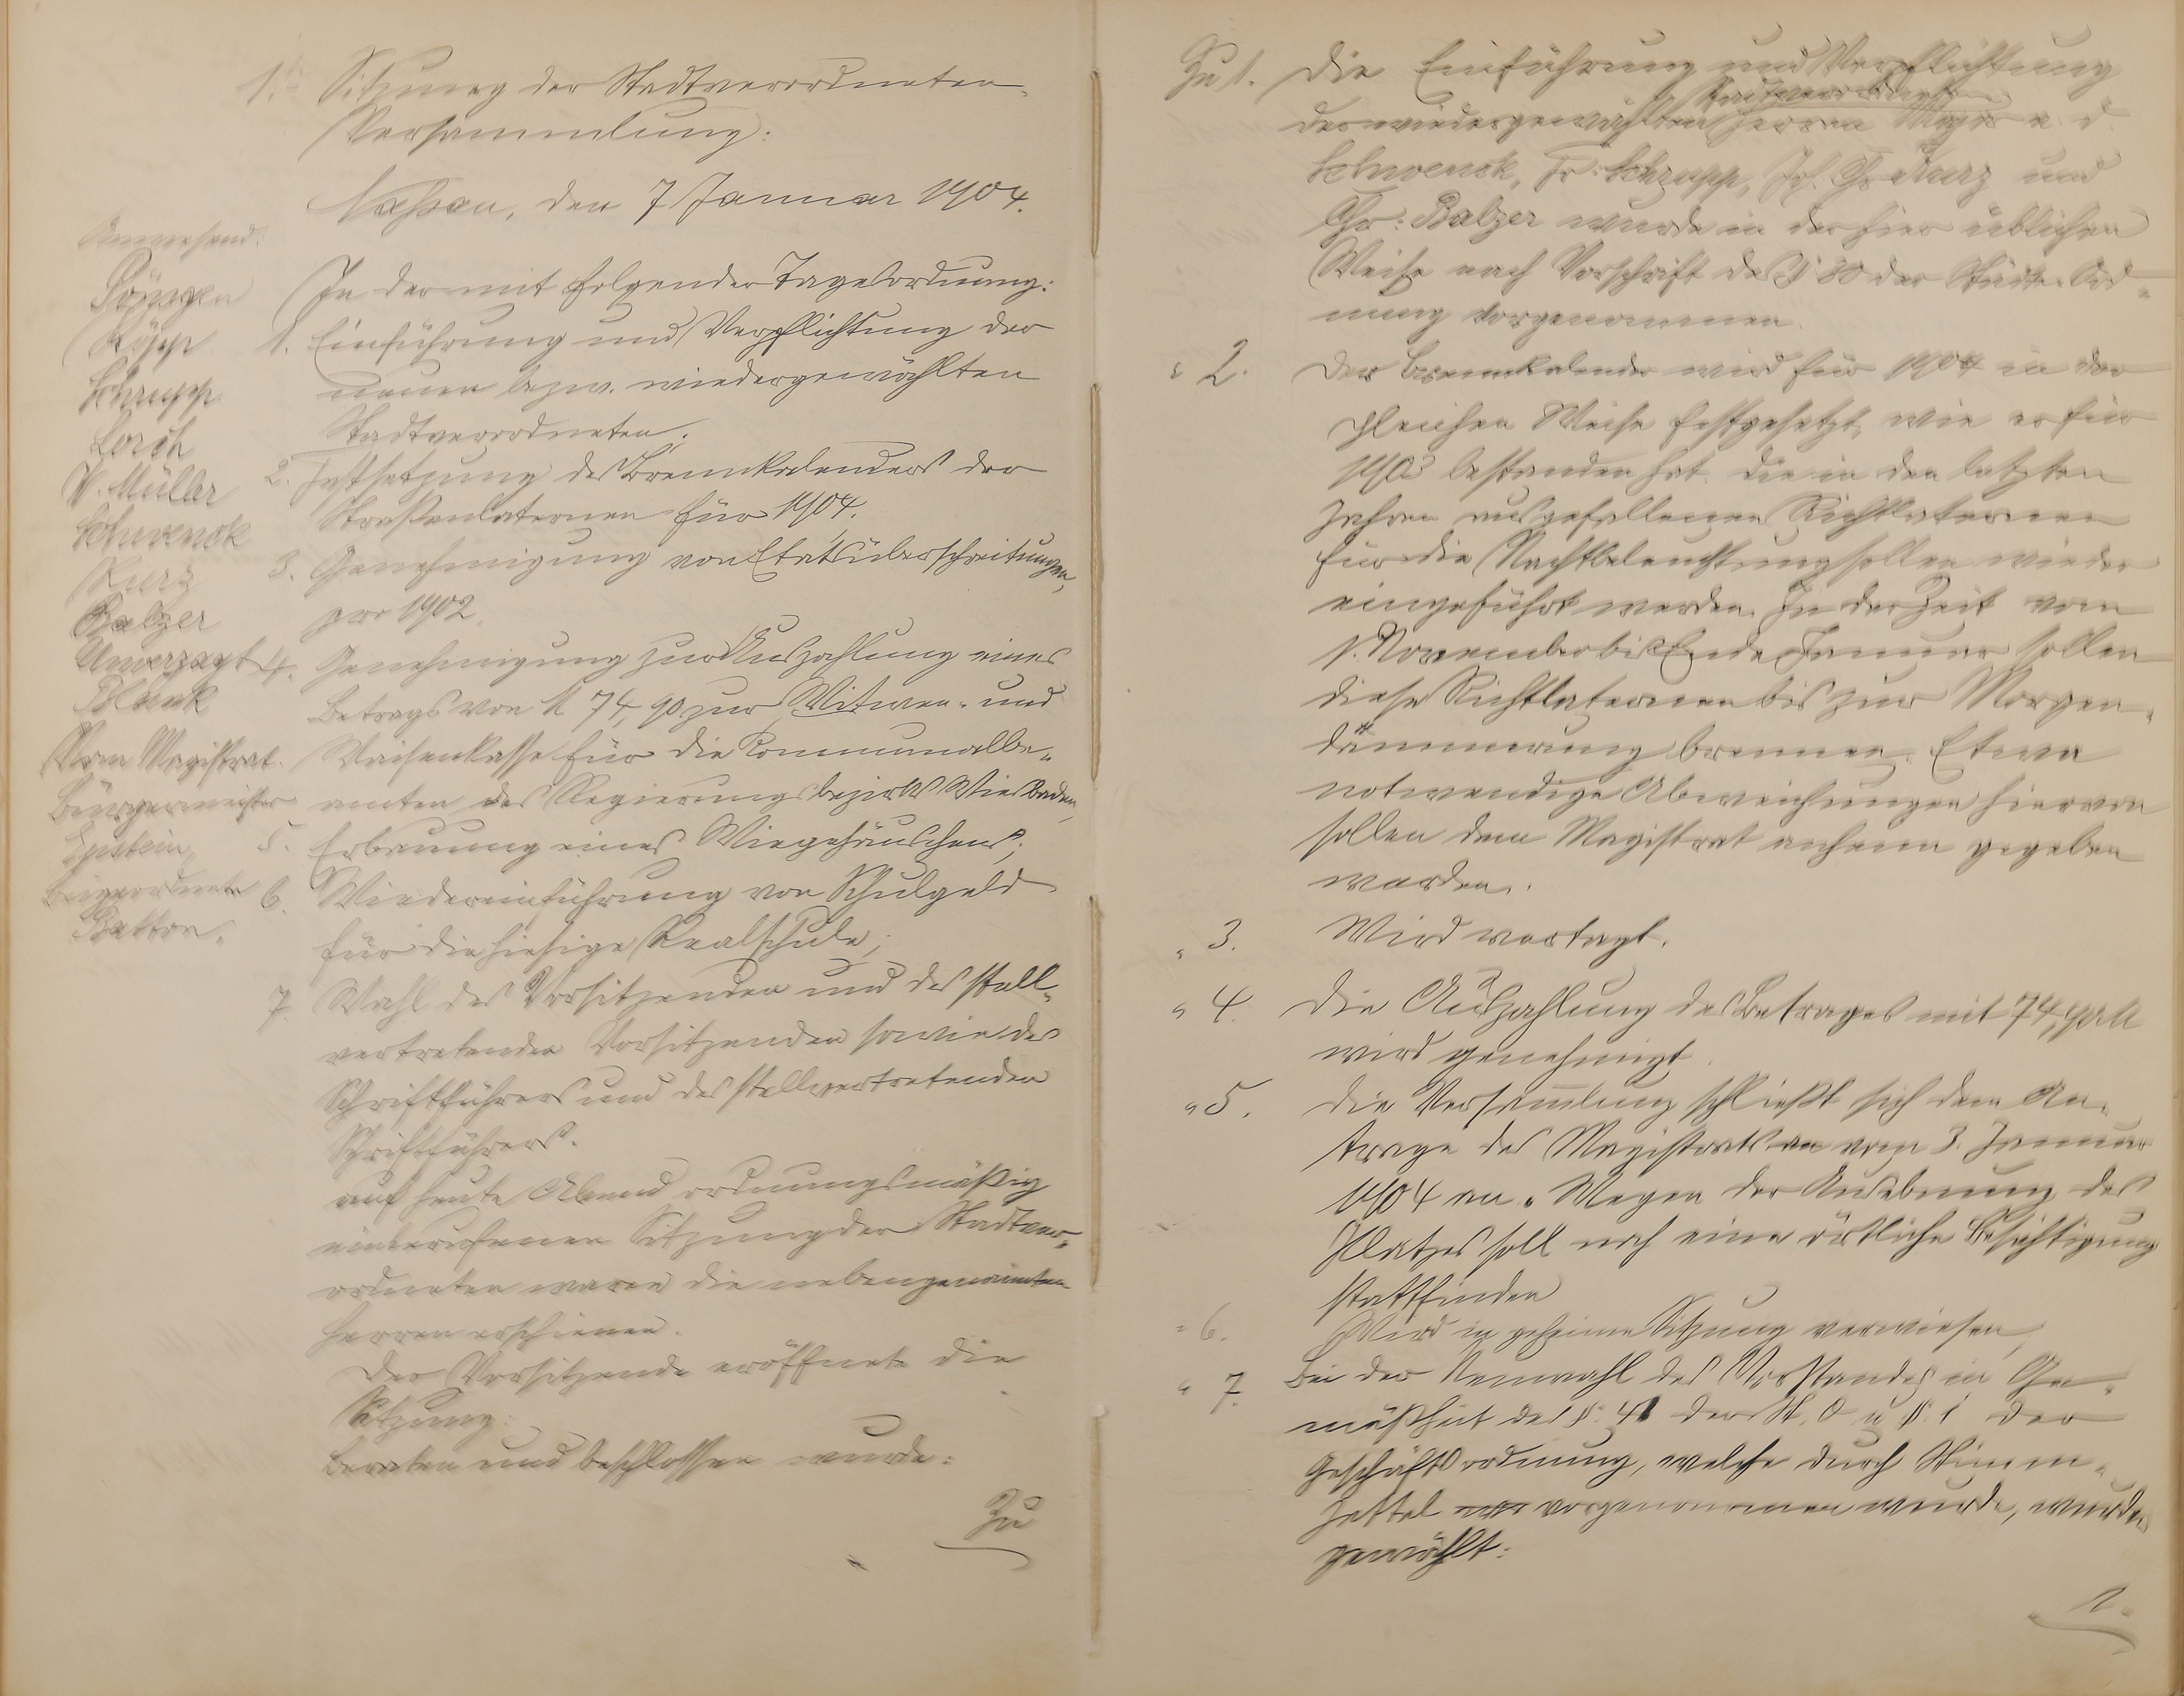 1. Sitzung der Stadtverordneten-
Versammlung:
Nassau, den 7 Januar 1904.
Anwesend:
Köpp
Schrupp
Lorch
W. Müller
Schwenck
Kurz
Balzer
Unverzagt
Blank
Vom Magistrat
Bürgermeister
Beigeordneter
In der mit folgender Tagesordnung:
1. Einführung und Verpflichtung der
neuen bezw. wiedergewählten
Stadtverordneten;
2. Festsetzung des Brennkalenders der
Straßenlaternen für 1904.
3. Genehmigung von Etatsüberschreitungen,
pro 1902.
4. Genehmigung zur Auszahlung eines
Betrags von M 74,90 zur Witwen- und
Waisenkasse für die Kommunalbe-
amten des Regierungsbezirks Wiesbaden,
5. Erbauung eines Wiegehäuschens;
6. Wiedereinführung von Schulgeld
für die hiesige Realschule;
7. Wahl des Vorsitzenden und des stell-
vertretenden Vorsitzenden sowie des
Schriftführers und des stellvertretenden
Schriftführers.
auf heute Abend ordnungsmäßig
einberufenen Sitzung der Stadtver-
ordneten waren die nebengenannten
Herren erschienen.
Der Vorsitzende eröffnete die
Sitzung.
Beraten und beschlossen wurde:
Zu
Zu 1. Die Einführung und Verpflichtung
Stadtverordneten
der wiedergewählten Herren
Schwenck, Fr. Schrupp, Kurz und
Chr: Balzer wurde in der hier üblichen
Weise nach Vorschrift des § 30 der Städte-Ord-
nung vorgenommen.
" 2. Der Brennkalender wird für 1904 in der
gleichen Weise festgesetzt, wie er für
1903 bestanden hat. Die in den letzten
Jahren ausgefallenen Richtlaternen
für die Nachtbeleuchtung sollen wieder
eingeführt werden. In der Zeit vom
1. November bis Ende Januar sollen
diese Richtlaternen bis zur Morgen-
dämmerung brennen. Etwa
notwendige Abweichungen hiervon
sollen dem Magistrat anheim gegeben
werden.
" 3. Wird vertagt.
" 4. Die Auszahlung des Betrages mit 74,90 M
wird genehmigt.
" 5. Die Versammlung schließt sich dem An-
trage des Magistrats vom 3. Januar
1904 an. Wegen der Ausebnung des
Platzes soll noch eine örtliche Besichtigung
stattfinden
" 6. Wird in geheime Sitzung verwiesen,
" 7. Bei der Neuwahl des Vorstandes in Ge-
mäßheit des §. 41 der St. O u §. 1 der
Geschäftsordnung, welche durch Stimm-
zettel vorgenommen wurde, wurden
gewählt:
1.